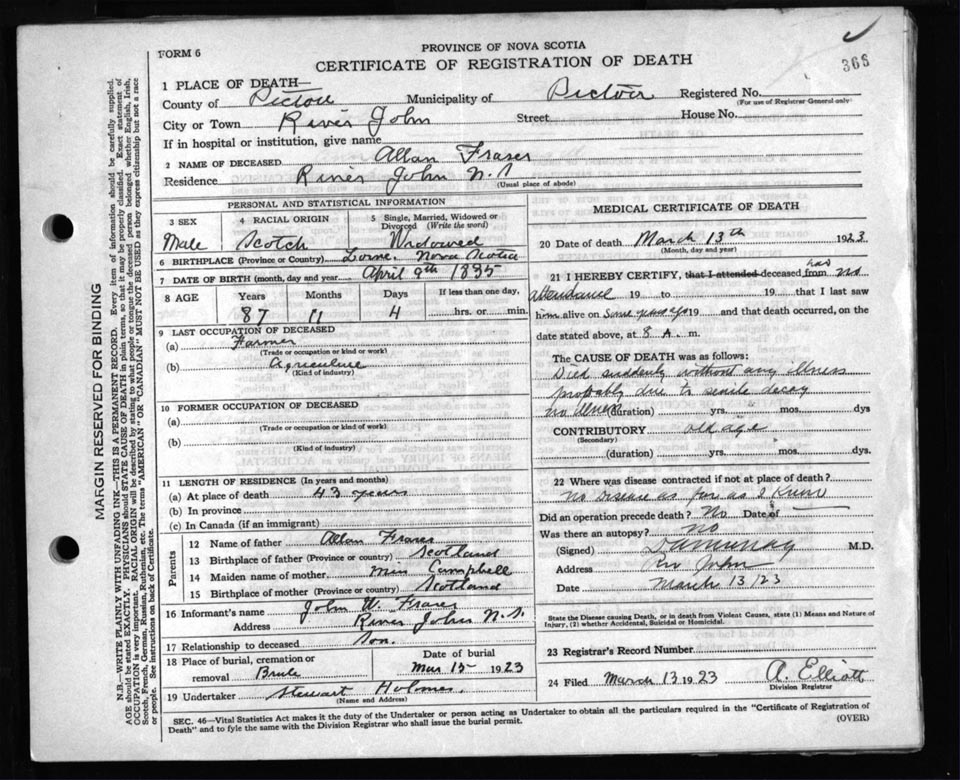 FORM 6
PROVINCE OF NOVA SCOTIA
CERTIFICATE OF REGISTRATION OF DEATH
366
1 PLACE OF DEATH—
County of Pictou Municipality of Pictou Registered No.
(For use of Registrar General only)
City or Town River John Street House No.
If in hospital or institution, give name
2 NAME OF DECEASED Allan Fraser
Residence River John N.S
(Usual place of abode)
PERSONAL AND STATISTICAL INFORMATION
3 SEX Male
4 RACIAL ORIGIN Scotch
5 Single, Married, Widowed or Divorced (Write the word) Widowed
6 BIRTHPLACE (Province or Country) Lorne, Nova Scotia
7 DATE OF BIRTH (month, day and year) April 9th 1835
8 AGE Years Months Days If less than one day,
87 11 4 hrs. or min.
9 LAST OCCUPATION OF DECEASED
(a) Farmer
(Trade or occupation or kind or work)
(b) Agriculture
(Kind of industry)
10 FORMER OCCUPATION OF DECEASED
(a)
(Trade or occupation or kind or work)
(b)
(Kind of industry)
11 LENGTH OF RESIDENCE (In years and months)
(a) At place of death 43 years
(b) In province
(c) In Canada (if an immigrant)
Parents
12 Name of father Allan Fraser
13 Birthplace of father (Province or country) Scotland
14 Maiden name of mother Miss Campbell
15 Birthplace of mother (Province or country) Scotland
16 Informant's name John W. Fraser
Address River John N.S.
17 Relationship to deceased Son.
18 Place of burial, cremation or removal Brule
Date of burial Mar 15 1923
19 Undertaker Stewart Holmes.
(Name and Address)
MEDICAL CERTIFICATE OF DEATH
20 Date of death March 13th 1923
(Month, day and year)
21 I HEREBY CERTIFY, that I attended deceased from had no
attendance 19 to 19 that I last saw
him alive on some 19 and that death occurred, on the
date stated above, at 8 A. m.
The CAUSE OF DEATH was as follows:
Died suddenly without any illness
probably due to senile decay
no illness (duration) yrs. mos. dys
CONTRIBUTORY old age
(Secondary)
(duration) yrs. mos. dys.
22 Where was disease contracted if not at place of death?
No Disease as far as I know
Did an operation precede death? No Date of
Was there an autopsy? No
(Signed) M.D.
Address Riv John
Date March 13/23
State the Disease causing Death, or in death from Violent Causes, state (1) Means and Nature of
Injury, (2) whether Accidental, Suicidal or Homicidal.
23 Registrar's Record Number
24 Filed March 13 1923 A. Elliott
Division Registrar
SEC. 46—Vital Statistics Act makes it the duty of the Undertaker or person acting as Undertaker to obtain all the particulars required in the "Certificate of Registration of
Death" and to fyle the same with the Division Registrar who shall issue the burial permit.
(OVER)
MARGIN RESERVED FOR BINDING
N.B.—WRITE PLAINLY WITH UNFADING INK—THIS IS A PERMANENT RECORD. Every item of information should be carefully supplied.
AGE should be stated EXACTLY. PHYSICIANS should STATE CAUSE OF DEATH in plain terms, so that it may be properly classified. Exact statement of
OCCUPATION is very important. RACIAL ORIGIN will be described by stating to what people or tongue the deceased person belonged whether English, Irish,
Scotch, French, German, Russian, Ruthenian, etc. The terms "AMERICAN" OR "CANADIAN" MUST NOT BE USED as they express citizenship but not a race
or people. See instructions on back of Certificate.